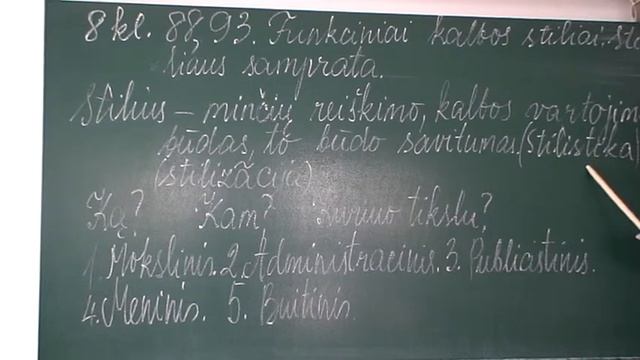 8 kl. 88, 93. Funkciniai kalbos stiliai. Sti
liaus samprata.
Stilius – minčių reiškimo, kalbos vartojim
būdas, to būdo savitumas, (Stilistika)
(stilizācija)
Ką? Kam? Kuriuo tikslu?
1. Mokslinis. 2. Administracinis. 3. Publicistinis.
4. Meninis. 5. Buitinis.